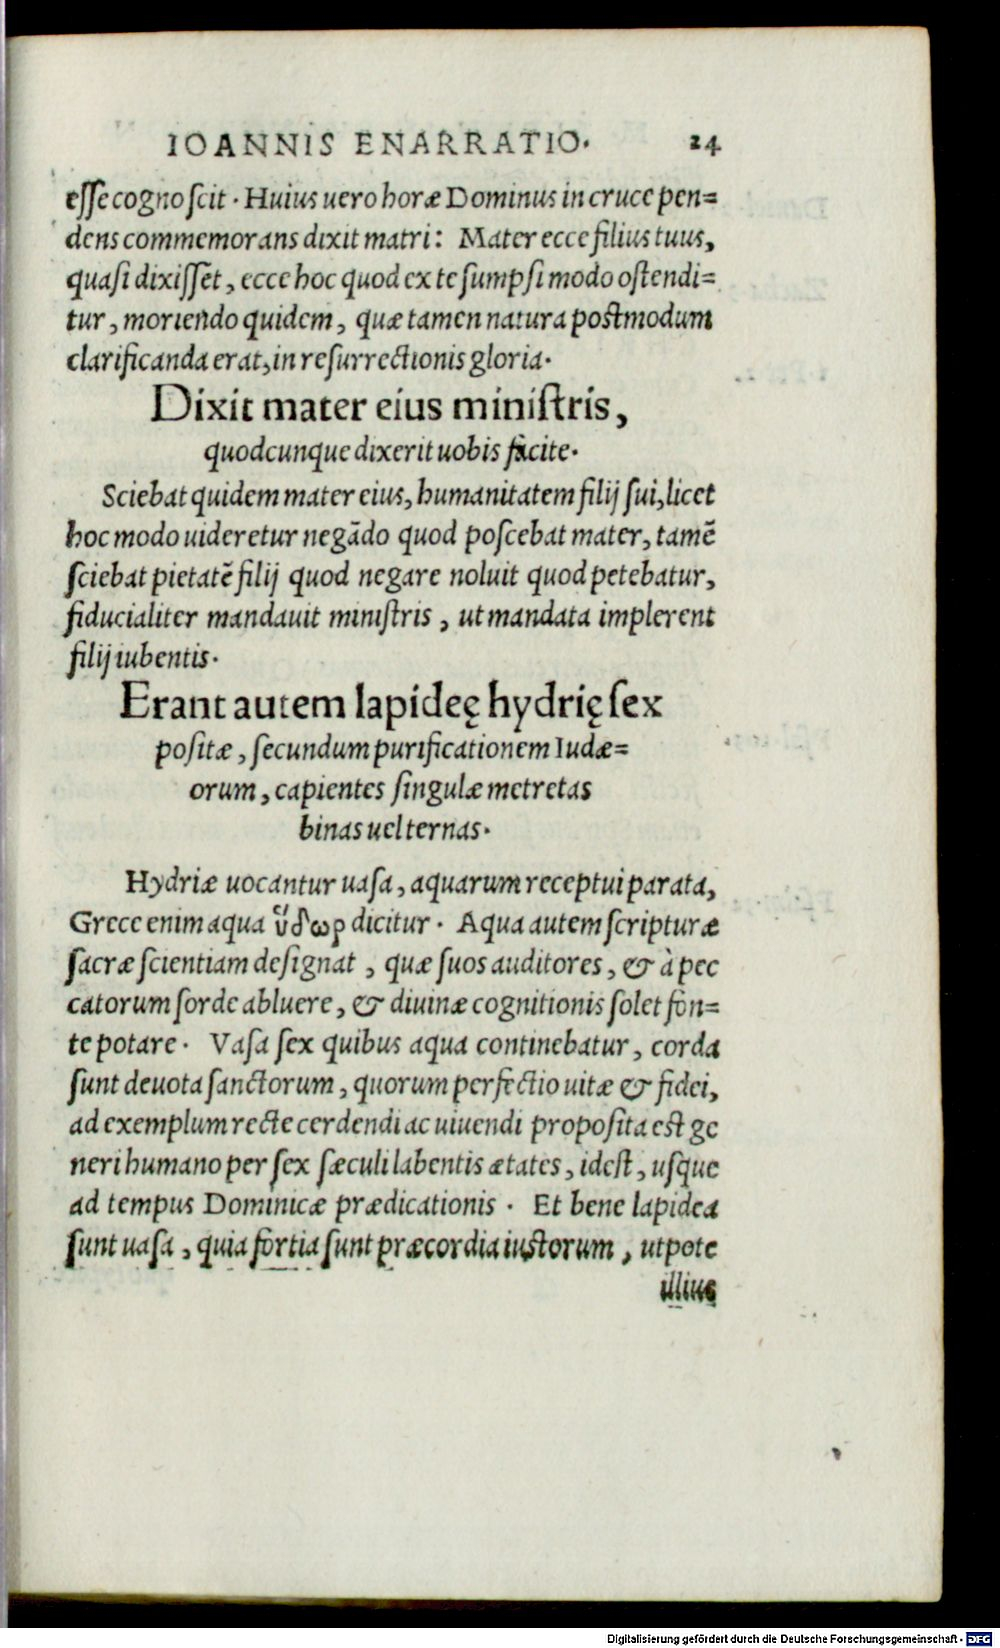 IOANNIS ENARRATIO. 24
esse cognoscit. Huius uero horæ Dominus in cruce pen=
dens commemorans dixit matri: Mater ecce filius tuus,
quasi dixisset, ecce hoc quod ex te sumpsi modo ostendi=
tur, moriendo quidem, quæ tamen natura postmodum
clarificanda erat, in resurrectionis gloria.
Dixit mater eius ministris,
quodcunque dixerit uobis facite.
Sciebat quidem mater eius, humanitatem filij sui, licet
hoc modo uideretur negãdo quod poscebat mater, tamẽ
sciebat pietatẽ filij quod negare noluit quod petebatur,
fiducialiter mandauit ministris, ut mandata implerent
filij iubentis.
Erant autem lapideę hydrię sex
positæ, secundum purificationem Iudæ=
orum, capientes singulæ metretas
binas uel ternas.
Hydriæ uocantur uasa, aquarum receptui parata,
Grece enim aqua ὕδωρ dicitur. Aqua autem scripturæ
sacræ scientiam designat, quæ suos auditores, & à pec
catorum sorde abluere, & diuinæ cognitionis solet fon=
te potare. Vasa sex quibus aqua continebatur, corda
sunt deuota sanctorum, quorum perfectio uitæ & fidei,
ad exemplum recte cerdendi ac uiuendi proposita est ge
neri humano per sex sæculi labentis ætates, idest, usque
ad tempus Dominicæ prædicationis. Et bene lapidea
sunt uasa, quia fortia sunt præcordia iustorum, utpote
illius
Digitalisierung gefördert durch die Deutsche Forschungsgemeinschaft - DFG